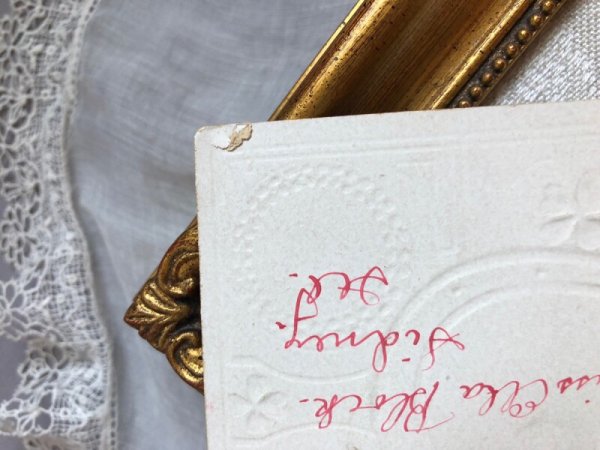 iss Ella Block.
Sidney.
Ill.